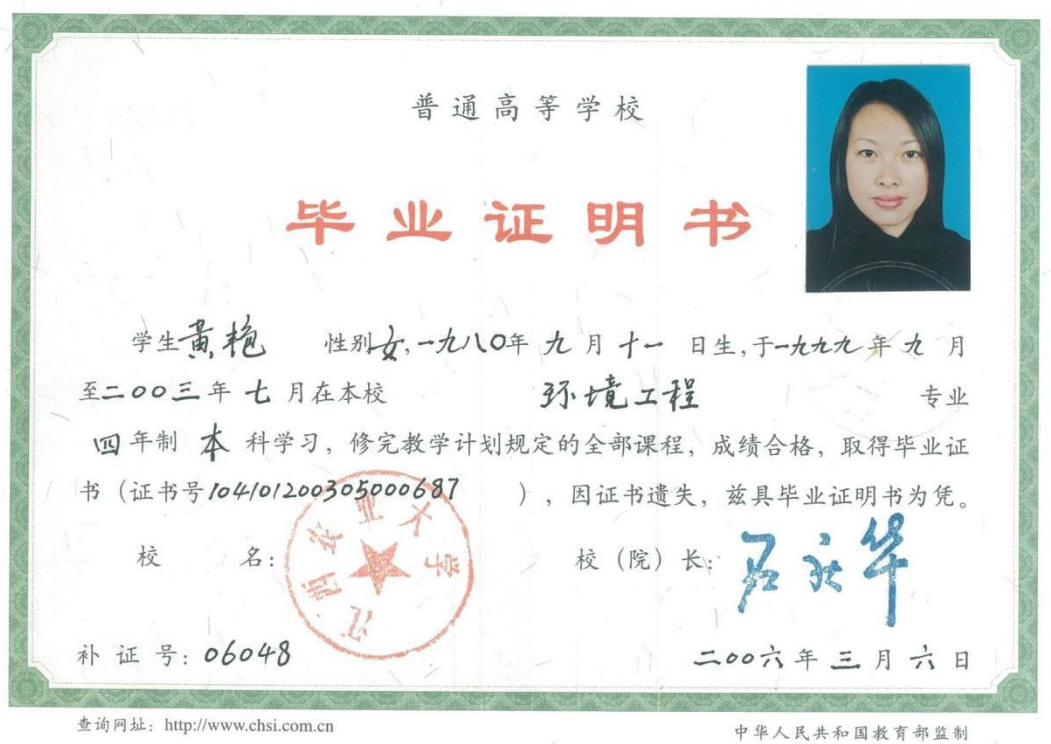 普通高等学校
毕业证明书
学生黄艳 性别女,一九八〇年九月十一日生,于一九九九年九月
至二〇〇三年七月在本校 环境工程 专业
四年制本科学习,修完教学计划规定的全部课程,成绩合格,取得毕业证
书(证书号104101200305000687),因证书遗失,兹具毕业证明书为凭。
校 名: 江西农业大学
校(院)长:
补证号:06048
二〇〇六年三月六日
查询网址:http://www.chsi.com.cn
中华人民共和国教育部监制